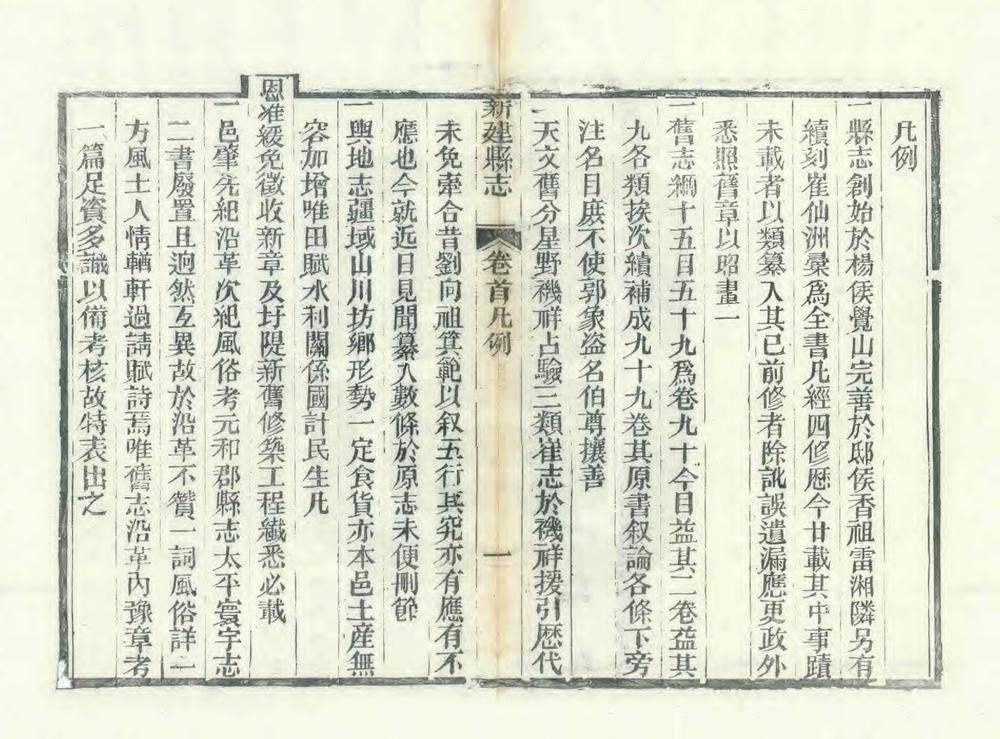 凡例
一縣志創始於楊侯覺山完善於邸侯香祖雷湘隣另有
續刻崔仙洲彙爲全書凡經四修歷今廿載其中事蹟
未載者以類纂入其已前修者除訛誤遺漏應更政外
悉照舊章以昭畫一
一舊志綱十五目五十九爲卷九十今目益其二卷益其
九各類挨次續補成九十九卷其原書叙論各條下旁
注名目庶不使郭象盗名伯尊攘善
一天文舊分星野禨祥占驗三類崔志於禨祥援引歷代
新建縣志 卷首凡例 一
未免牽合昔劉向祖箕範以叙五行其究亦有應有不
應也今就近日見聞纂入數條於原志未便刪節
一輿地志疆域山川坊鄉形勢一定食貨亦本邑土産無
容加增唯田賦水利關係國計民生凡
恩准緩免徵收新章及圩隄新舊修築工程纎悉必載
一邑肇先紀沿革次紀風俗考元和郡縣志太平寰宇志
二書廢置且逈然互異故於沿革不贊一詞風俗詳一
方風土人情輶軒過請賦詩焉唯舊志沿革內豫章考
一篇足資多識以備考核故特表出之